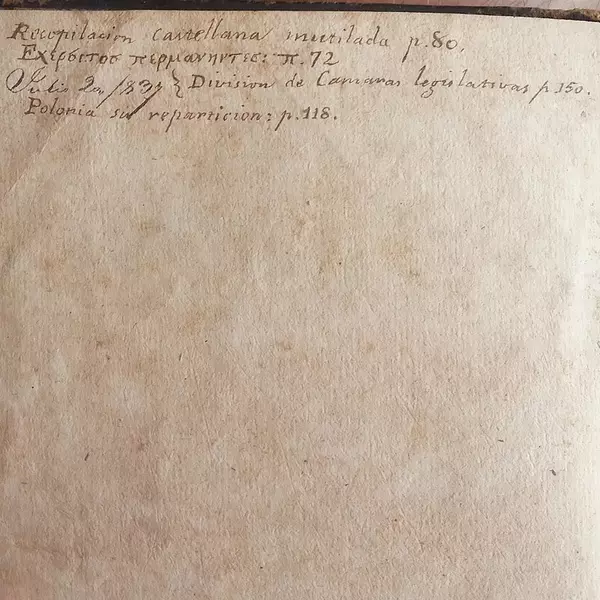 Recopilacion Castellana mutilada p. 80.
Εχερσιτοσ περμανηντες: π. 72
Julio 20/1837 } Division de Camaras legislativas p. 150.
Polonia su reparticion: p. 118.